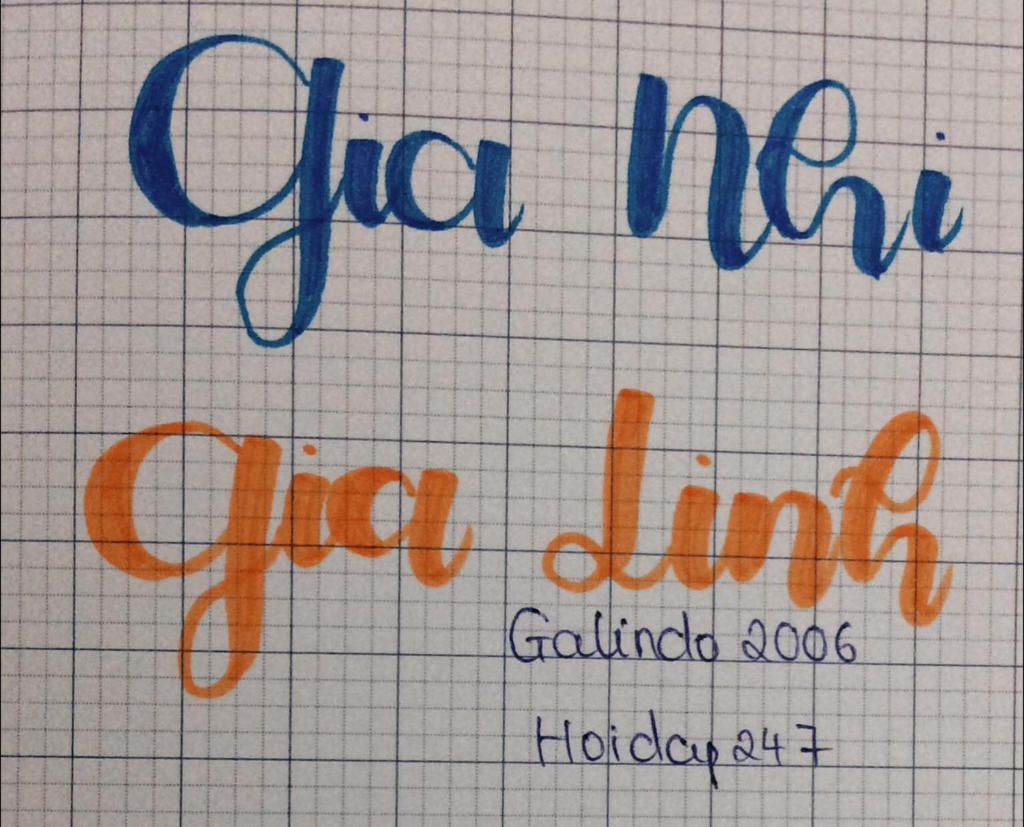 Gia Nhi
Gia Linh
Galindo 2006
Hoidap 247